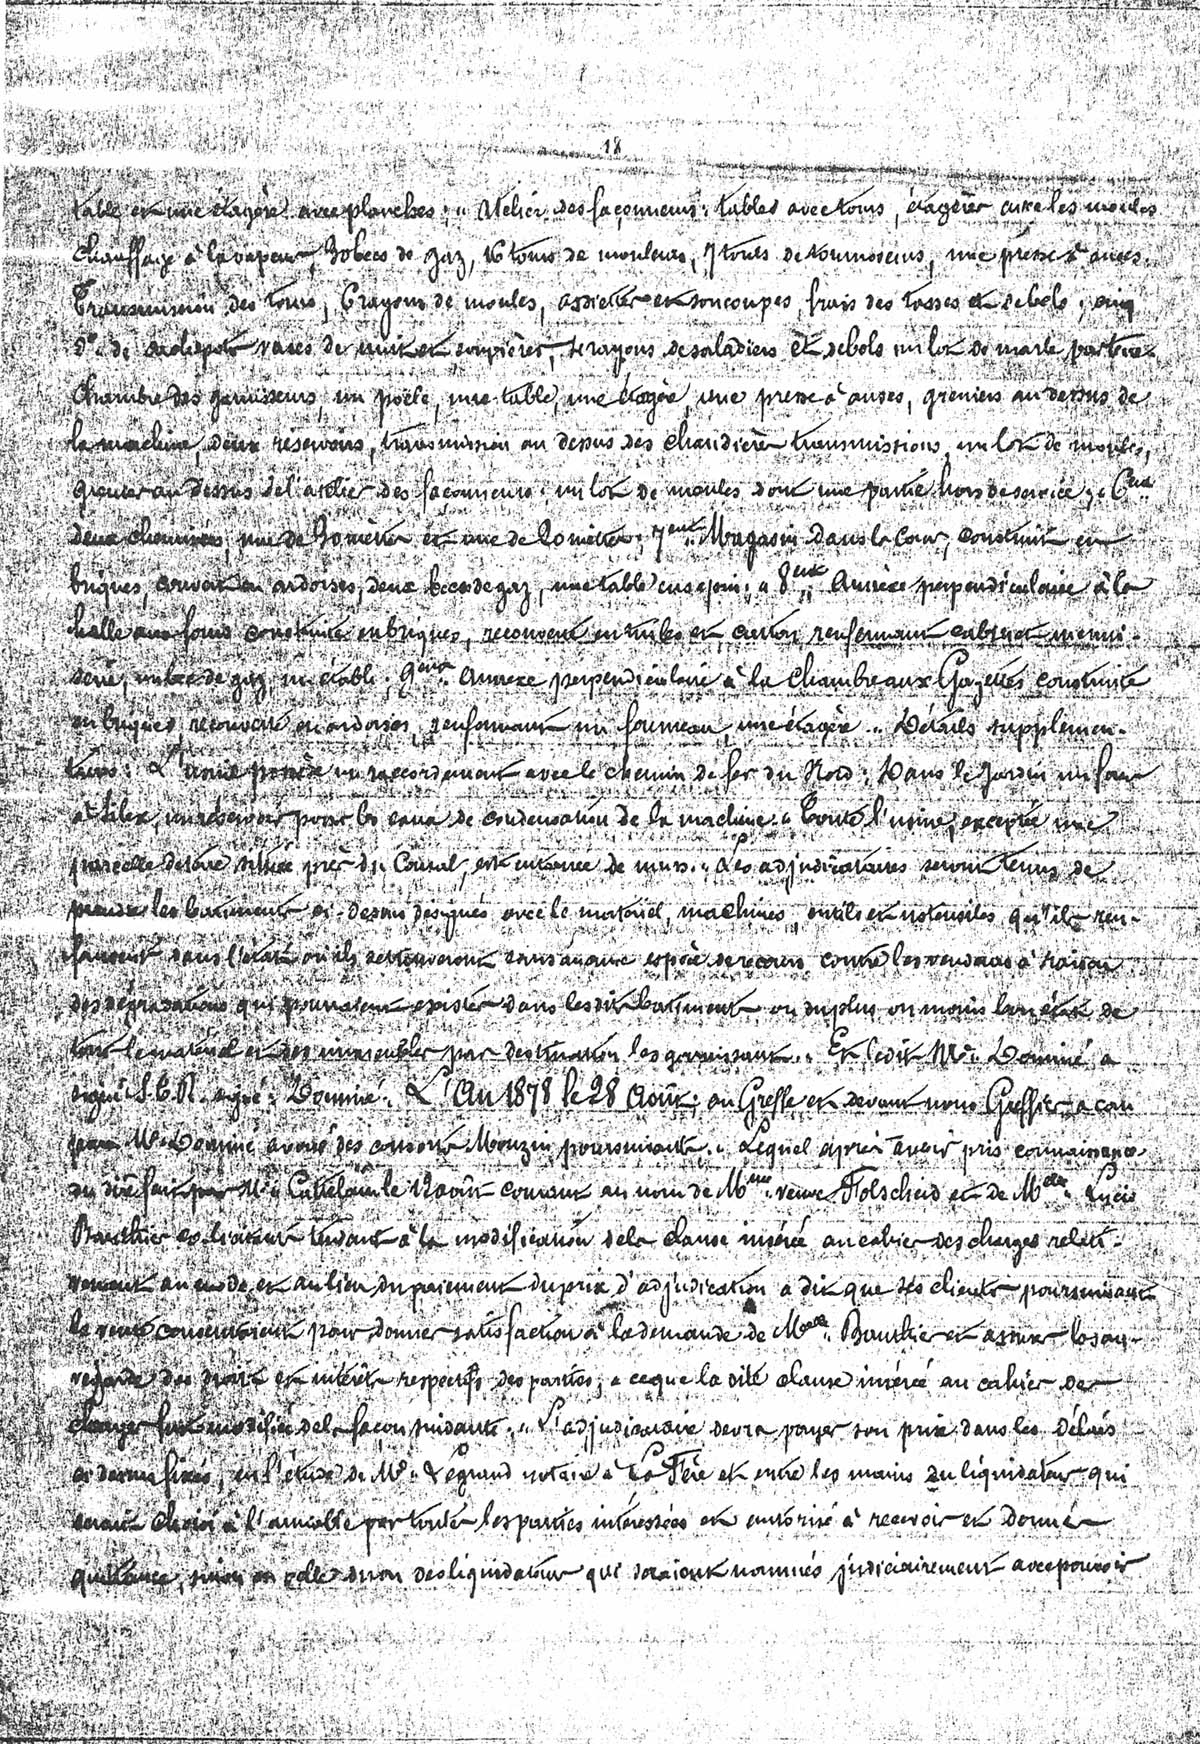 18
table et une étagère avec planches ; " Atelier des façonneurs : tables avec tours, étagères avec les moules
Chauffage à la vapeur, becs de gaz, 16 tours de mouleurs, 7 tours de tournaseurs, une presse à anses.
Transmission des tours, 6 rayons de moules, assiettes et soucoupes, frais des tasses et de bols ; cinq
do. de cachepots vases de nuit et soupières, rayons de saladiers et de bols un lot de marle par terre
Chambre des garnisseurs, un poêle, une table, une étagère, une presse à anses, greniers au dessus de
la machine, deux réservoirs, transmission au dessus des chaudières transmissions, un lot de moules,
grenier au dessus de l'atelier des façonneurs : un lot de moules dont une partie hors de service ; " 6ent
deux cheminées, une de 30 mètres et une de 20 mètres ; 7ent. Magasin dans la Cour, construit en
briques, couvert en ardoises, deux becs de gaz, une table ; " 8ent. Annexe perpendiculaire à la
halle aux fours construite en briques, recouverte en tuiles et carton, renfermant cabinet menui-
serie, un bec de gaz, un établi ; 9ent. Annexe perpendiculaire à la Chambre aux Gazettes construite
en briques, recouverte en ardoises, renfermant un fourneau, une étagère " Détails supplémen-
taires : L'usine possède un raccordement avec le chemin de fer du Nord ; Dans le jardin un four
à silex, un réservoir pour les eaux de condensation de la machine. " Toute l'usine, exceptée une
parcelle de terre située près du Canal, est entourée de murs. " Les adjudicataires seront tenus de
prendre les bâtiments ci-dessus désignés avec le matériel, machines, outils et ustensiles qu'ils ren-
ferment dans l'état où ils se trouveront sans aucune espèce de recours contre les vendeurs à raison
des dégradations qui pourraient exister dans lesdits bâtiments ou du plus ou moins bon état de
tout le matériel et des immeubles par destination les garnissant. " Et ledit Me. Dominé a
signé S.E.R. signé : Dominé. L'An 1878 le 28 Août ; au Greffe et devant nous Greffier a com
paru Me. Dominé avoué des consorts Mouzin poursuivants. " Lequel après avoir pris connaissance
du dire fait par Me. le 12 août courant au nom de Mme. veuve Folscheid et de Melle. Lucie
Bauthier tendant à la modification de la clause insérée au cahier des charges relati-
vement au mode et au lieu du paiement du prix d'adjudication a dit que ses clients poursuivant
la vente consentaient pour donner satisfaction à la demande de Melle. Bauthier et assurer la sau-
vegarde des droits et intérêts respectifs des parties, à ce que la dite clause insérée au cahier des
charges fut modifiée de la façon suivante : " L'adjudicataire devra payer son prix dans les délais
ci dessus fixés, en l'étude de Me. Legrand notaire à La Fère et entre les mains du liquidateur qui
serait choisi à l'amiable par toutes les parties intéressées et autorisé à recevoir et donner
quittance, sinon en celles du ou des liquidateurs qui seraient nommés judiciairement avec pouvoir